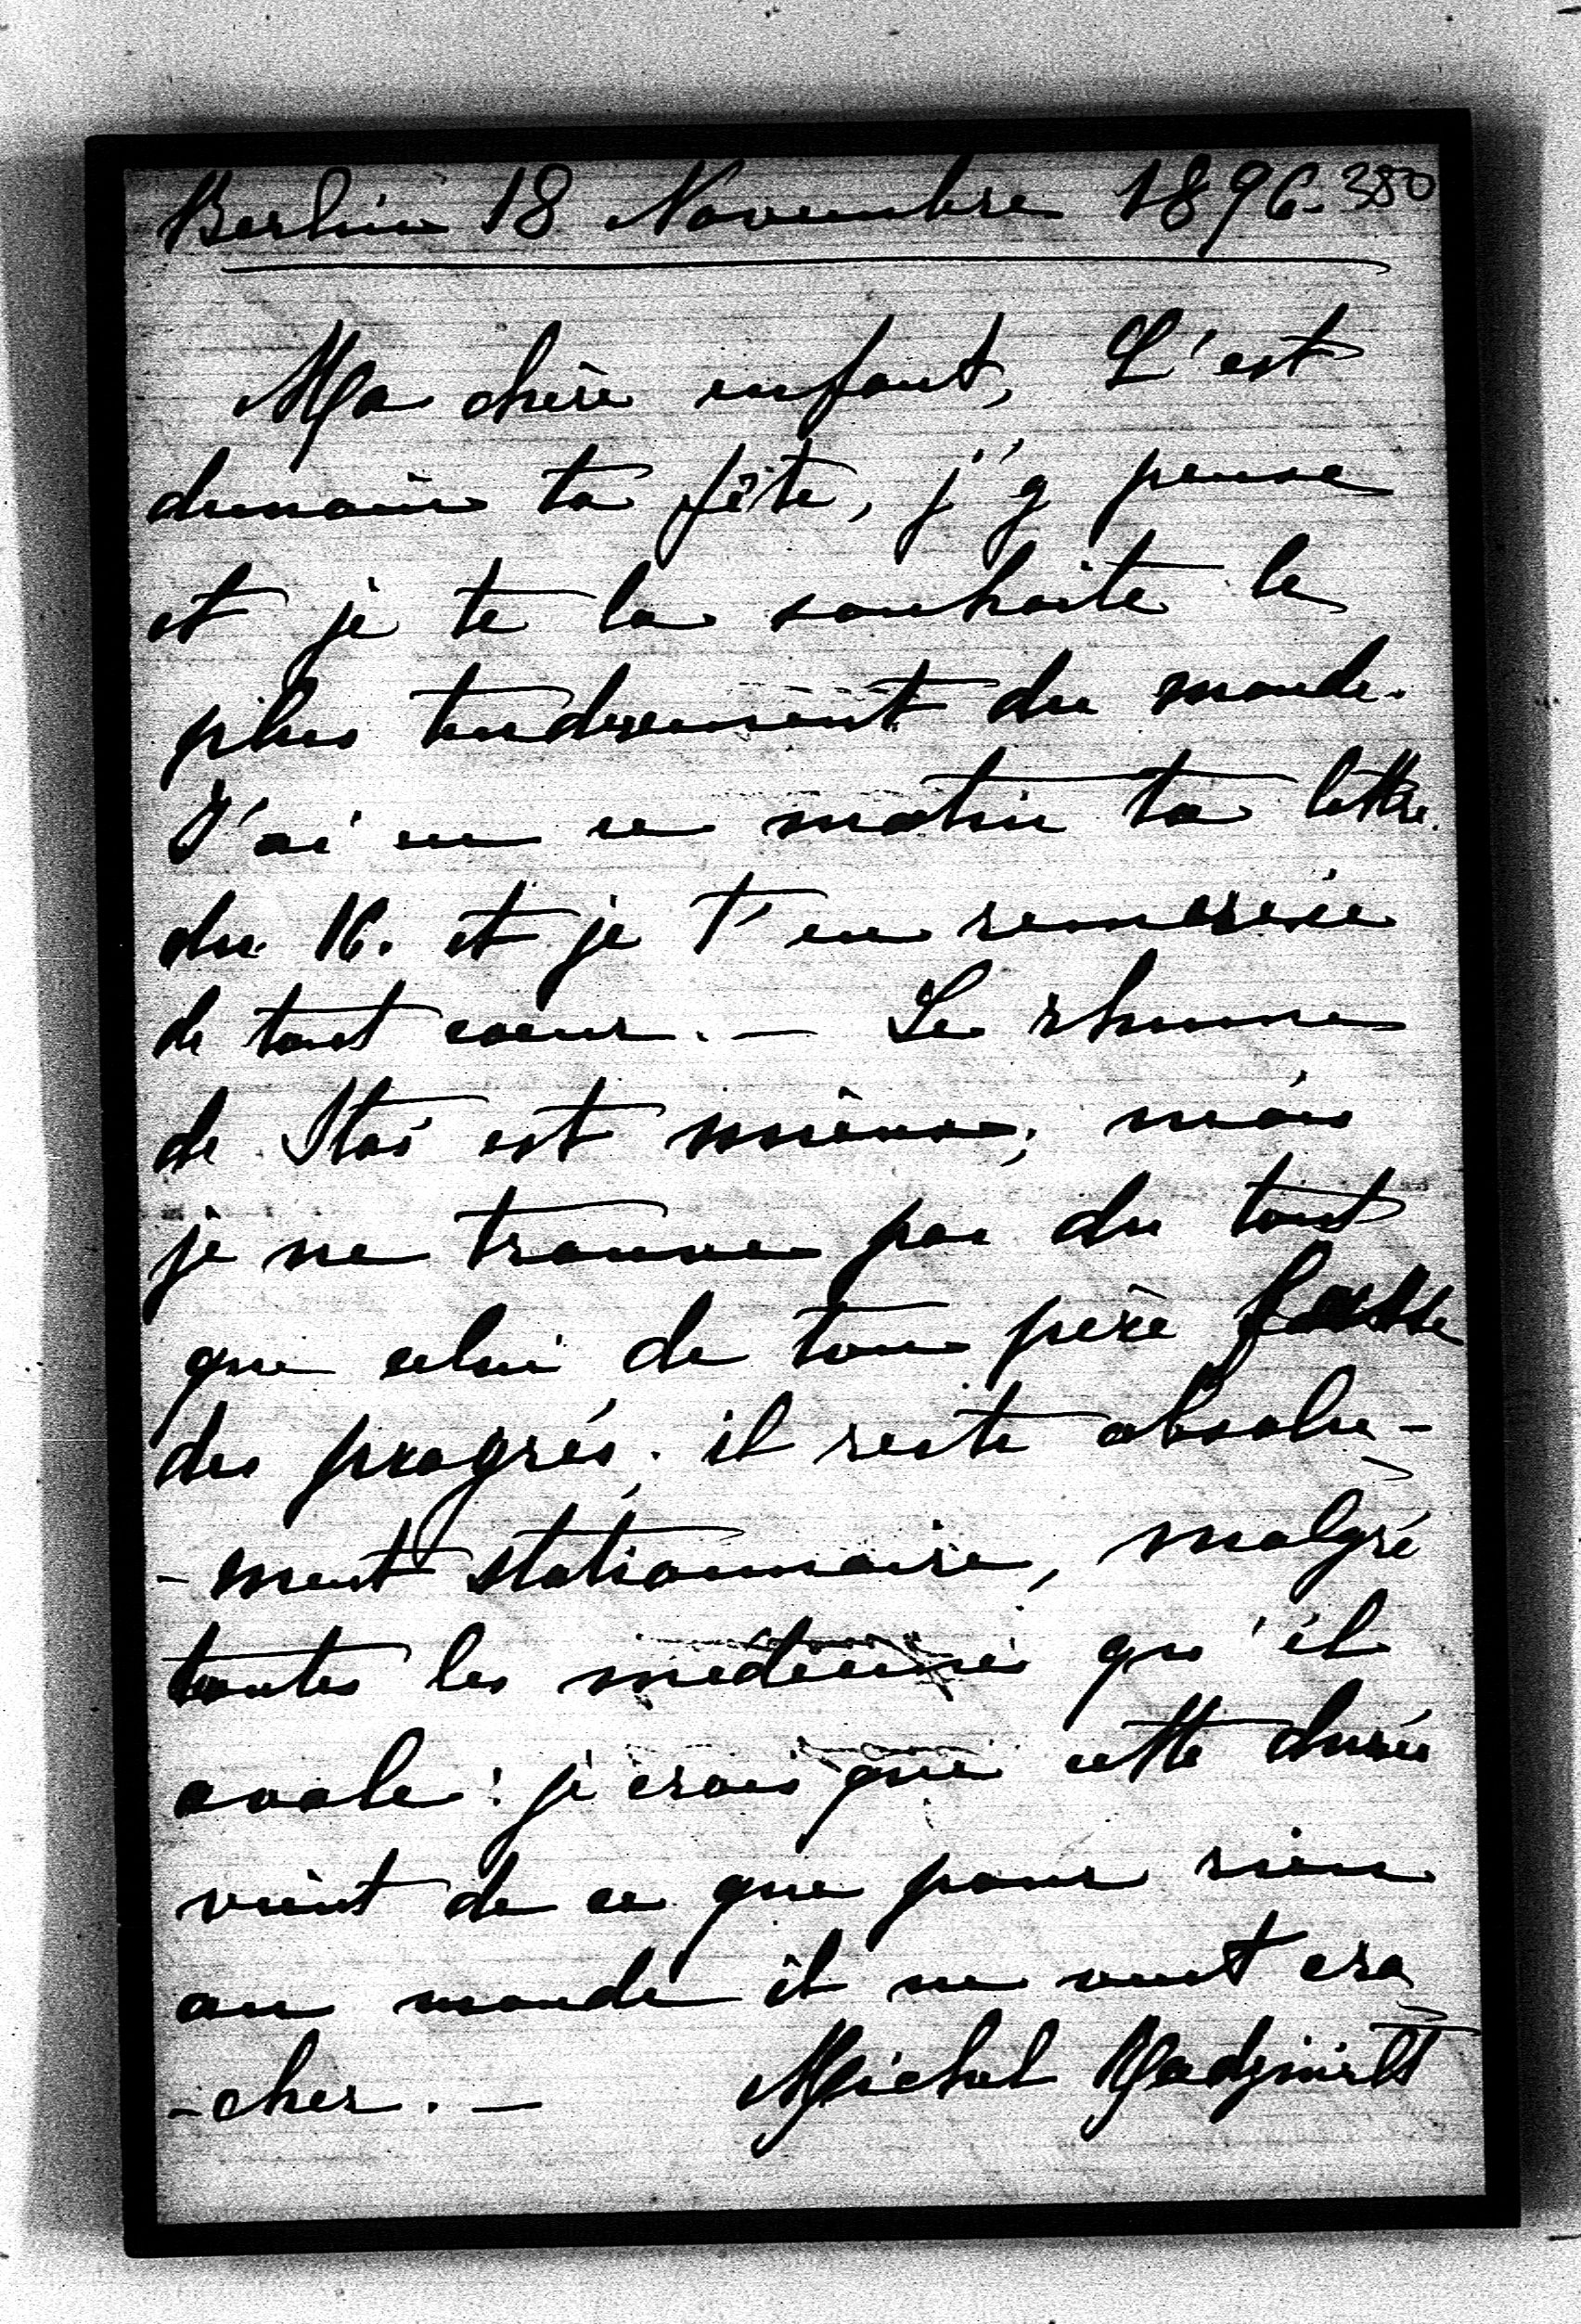 Berlin 18 Novembre 1896. 380
Ma chère enfant, C'est
demain ta fête, j'y pense
et je te la souhaite le
plus tendrement du monde.
J'ai eu ce matin ta lettre
du 16. et je t'en remercie
de tout coeur. — Le rhume
de Stas est mieux, mais
je ne trouve pas du tout
que celui de ton père fasse
des progrés. il reste absolu-
-ment stationnaire, malgré
toutes les médecines qu'il
avale: je crois que cette durée
vient de ce que pour rien
au monde il ne veut cra
-cher. — Michel